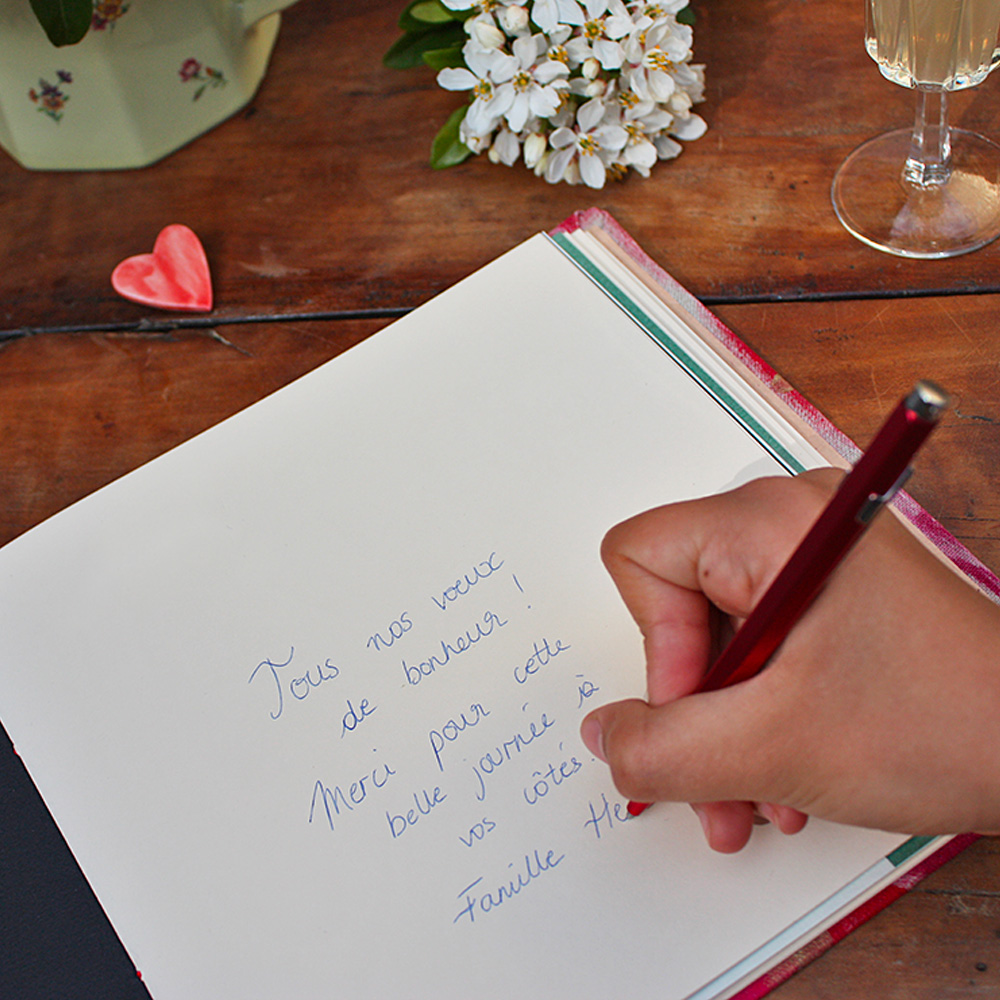 Tous nos voeux
de bonheur !
Merci pour cette
belle journée à
vos côtés.
Famille He